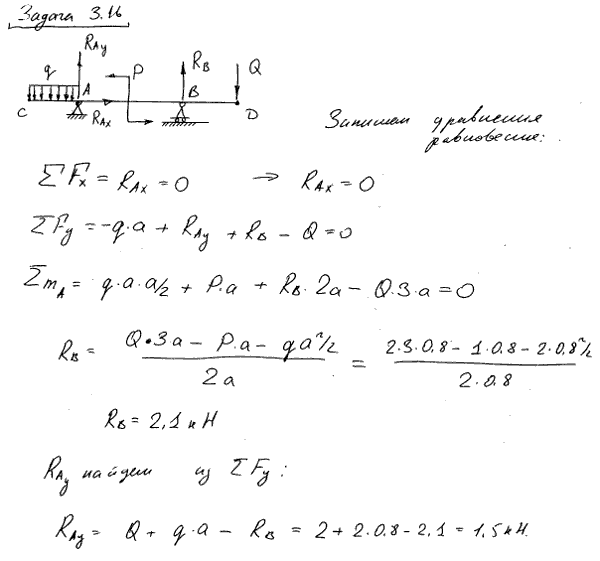 Задача 3.16
R_Ay
q
A
P
R_B
B
Q
C
R_Ax
D
Запишем уравнения
равновесие:
ΣFx = R_Ax = 0 → R_Ax = 0
ΣFy = -q·a + R_Ay + R_B - Q = 0
Σm_A = q·a·a/2 + P·a + R_B·2a - Q·3·a = 0
R_B = (Q·3a - P·a - qa²/2)/(2a) = (2·3·0,8 - 1·0,8 - 2·0,8²/2)/(2·0,8)
R_B = 2,1 кН
R_Ay найдем из ΣFy:
R_Ay = Q + q·a - R_B = 2 + 2·0.8 - 2,1 = 1,5 кН.